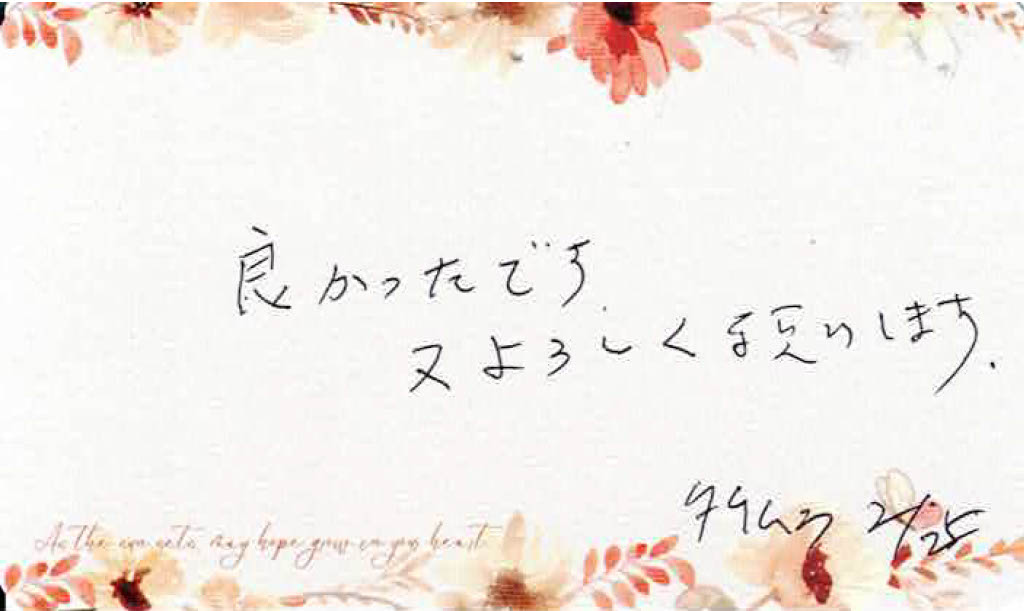 良かったです.
又よろしくお願いします.
2/25
As the sun sets, may hope grow in your heart